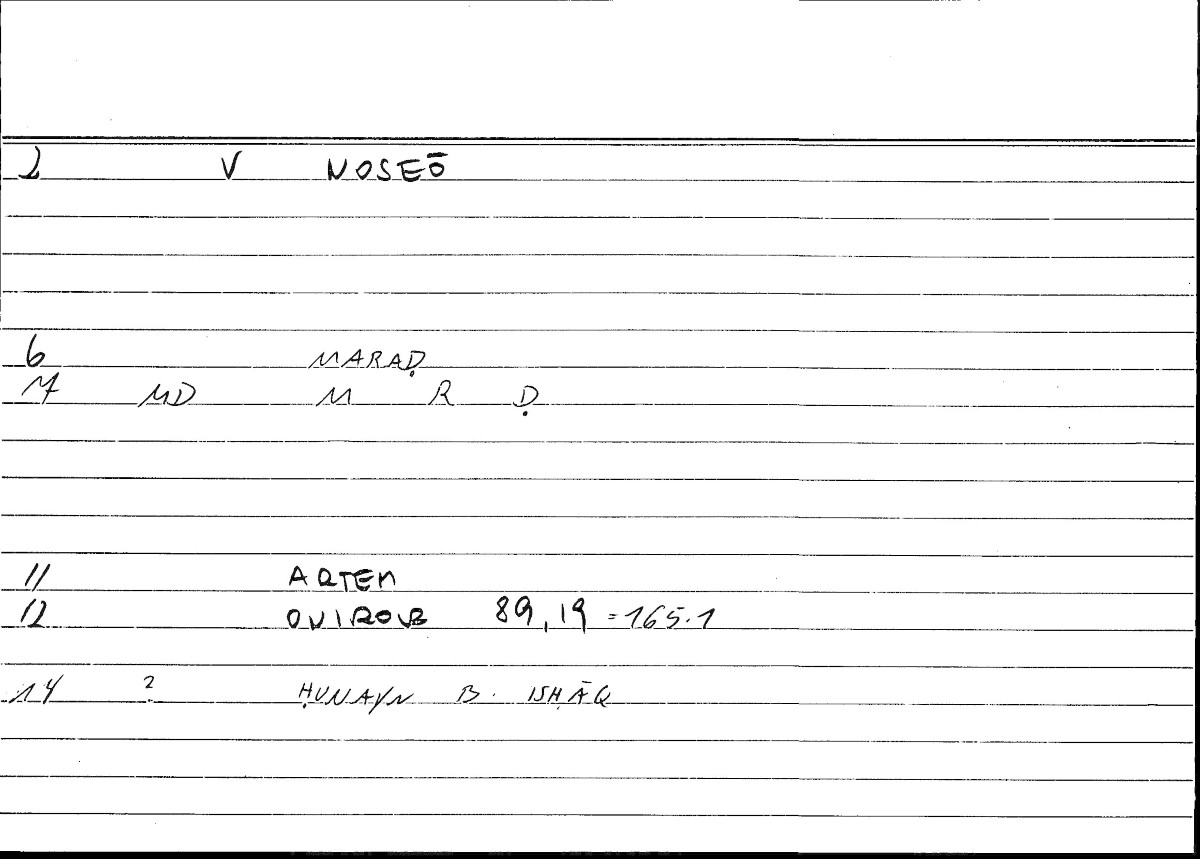 2 V NOSEŌ
6 MARAḌ
7 MD M R Ḍ
11 ARTEM
12 89,19 =165.1
14 ? ḤUNAYN B. ISḤĀQ